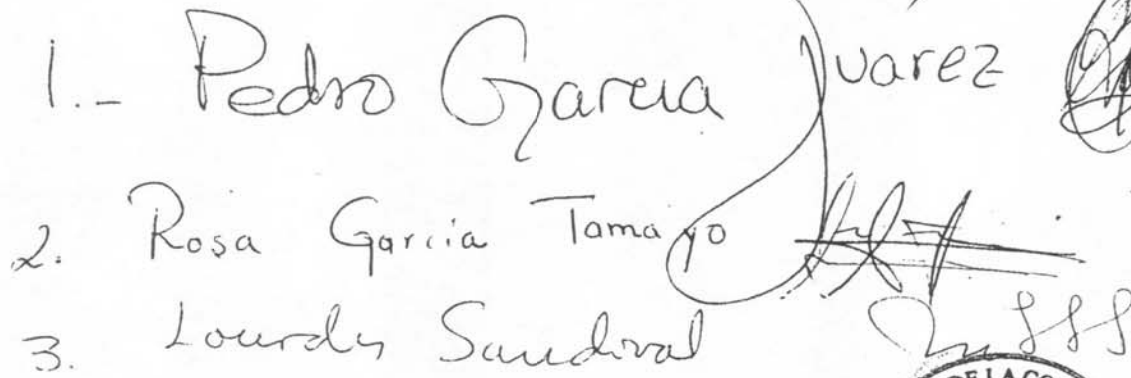 1.- Pedro Garcia Juarez
2. Rosa Garcia Tamayo
3. Lourdes Sandival